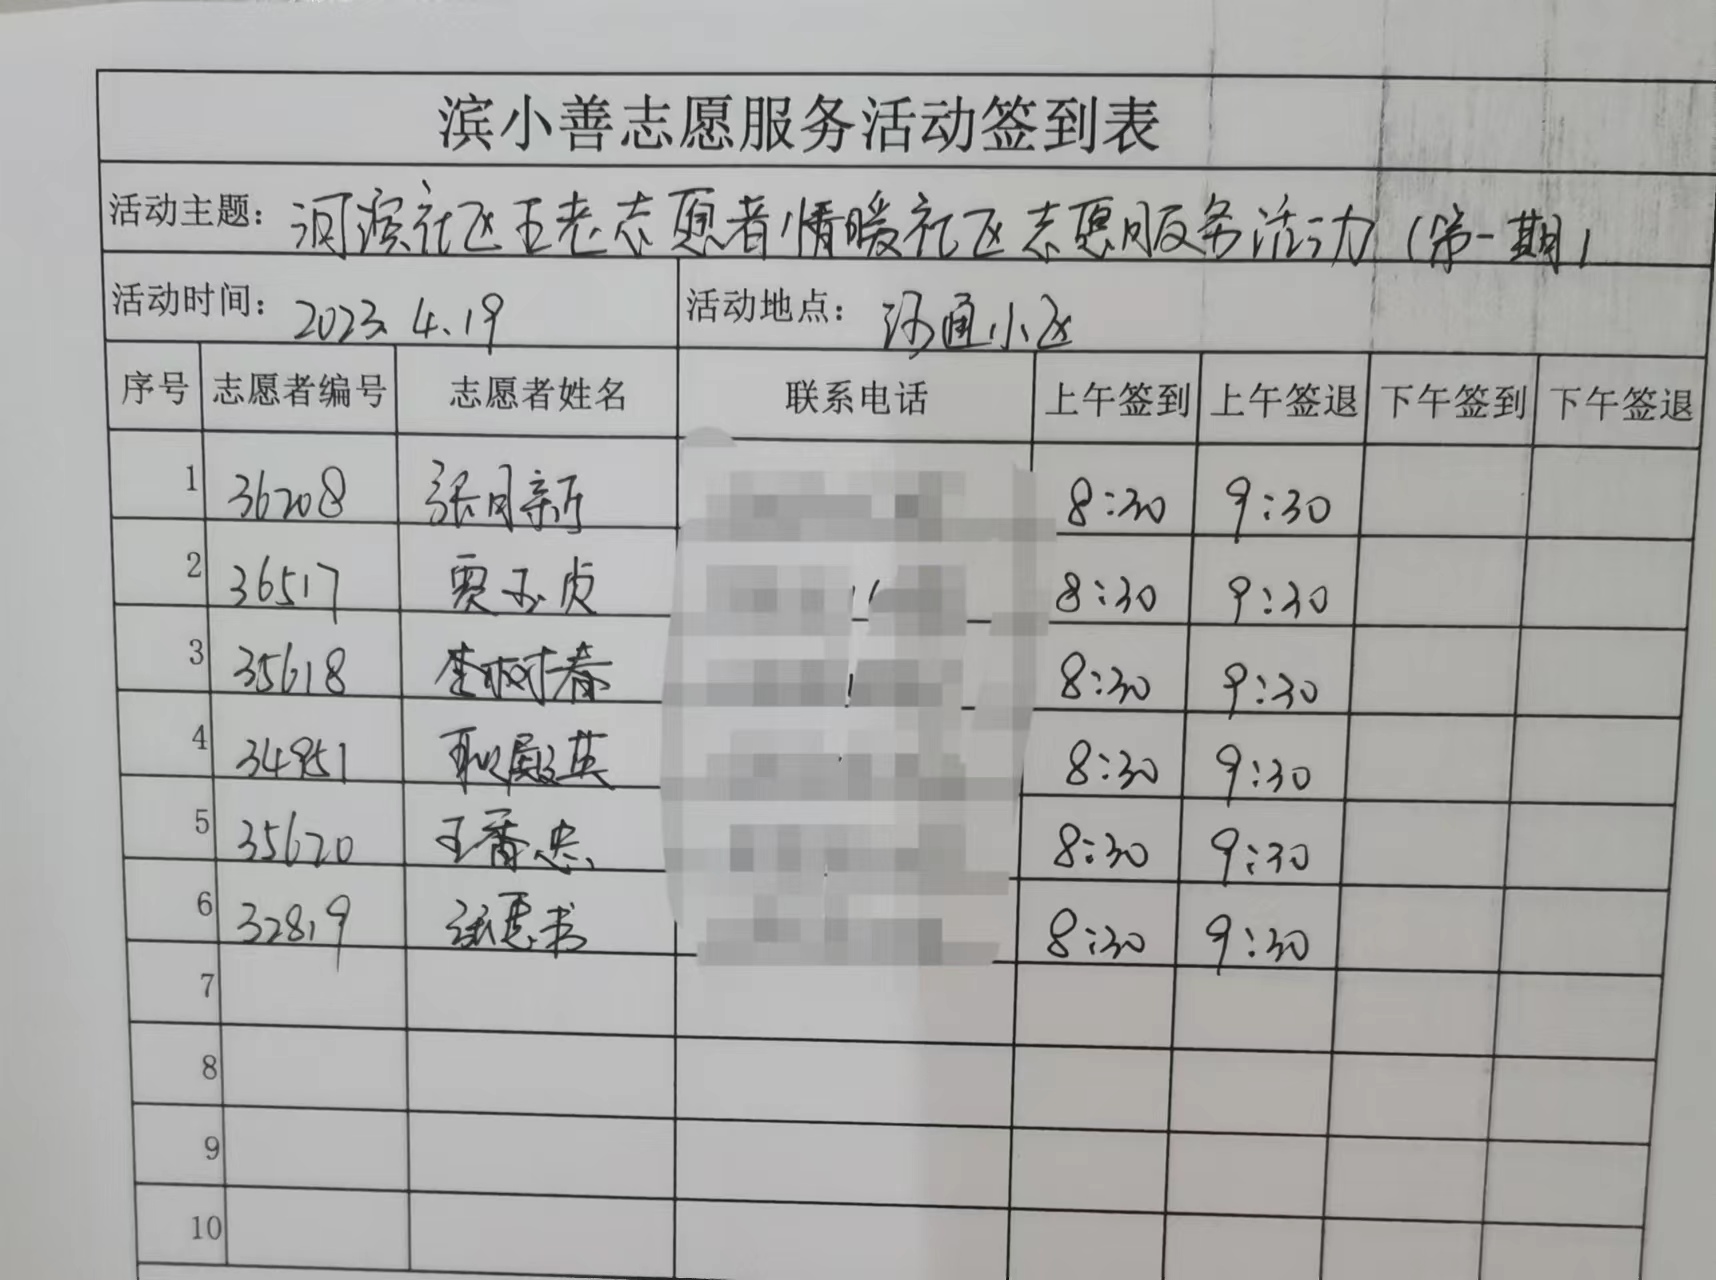 滨小善志愿服务活动签到表
活动主题：河滨社区五老志愿者情暖社区志愿服务活动（第一期）
活动时间：2023.4.19 活动地点：沟通小区
序号 志愿者编号 志愿者姓名 联系电话 上午签到 上午签退 下午签到 下午签退
1 36208 张月新 8:30 9:30
2 36517 贾玉贞 8:30 9:30
3 35618 李树春 8:30 9:30
4 34951 8:30 9:30
5 35620 王香忠 8:30 9:30
6 32819 8:30 9:30
7
8
9
10